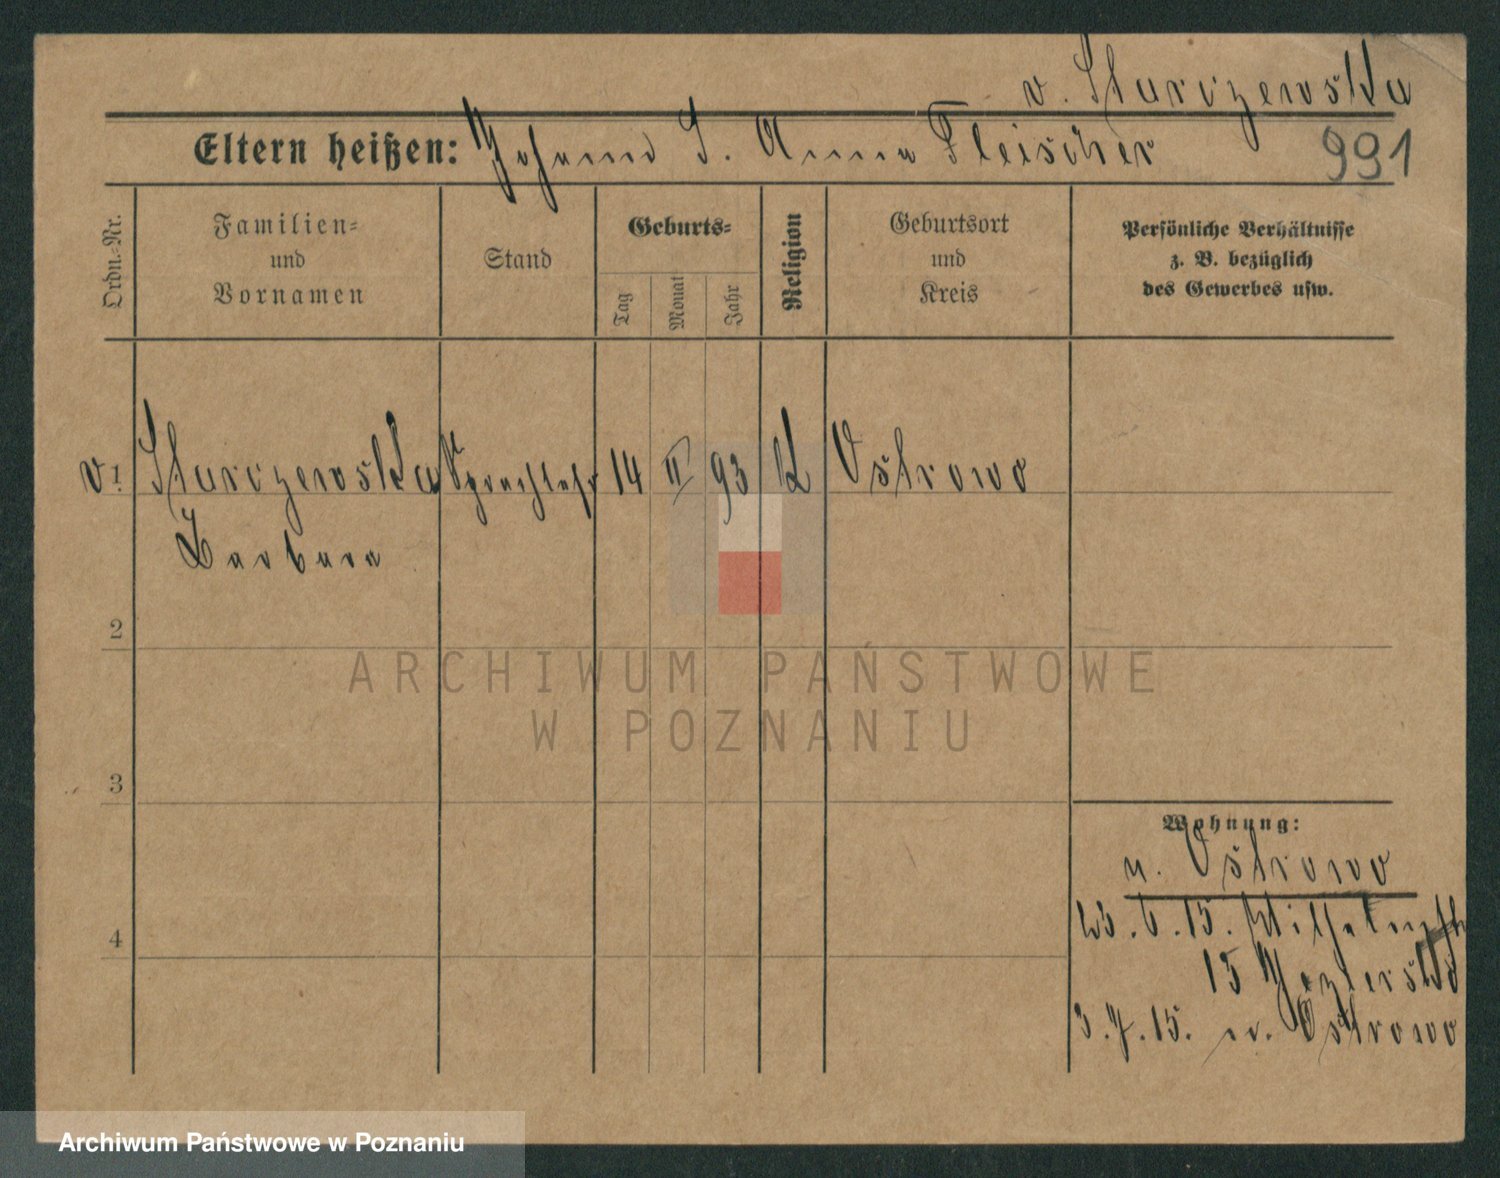 v. Skurczewska
Eltern heißen: Johann S. Anna Fleischer 991
Ordn.-Nr.
Familien- und Vornamen
Stand
Geburts-
Tag
Monat
Jahr
Religion
Geburtsort und Kreis
Persönliche Verhältnisse
z. B. bezüglich
des Gewerbes usw.
v 1 Skurczewska Sprachlehr 14 II 93 K Ostrowo
Barbara
2
3
4
Wohnung:
n. Ostrowo
23.6.15.
15
3.7.15. n. Ostrowo
ARCHIWUM PAŃSTWOWE
W POZNANIU
Archiwum Państwowe w Poznaniu